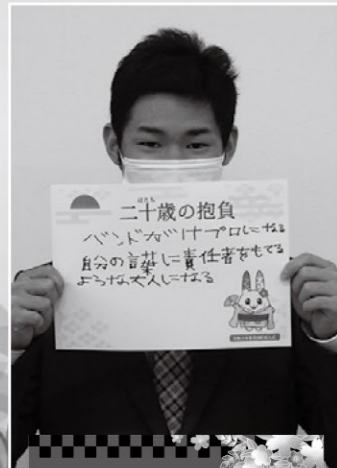 はたち
二十歳の抱負
バンドがけプロになる
自分の言葉に責任者をもてる
ような大人になる